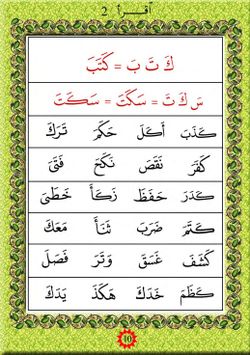 أقرأ 2
كَ تَ بَ = كَتَبَ
سَ كَ تَ = سَكَتَ = سَكَتَ
كَذَبَ أَكَلَ حَكَمَ تَرَكَ
كَفَرَ نَقَصَ نَكَحَ فَتَىَ
كَدَرَ حَفَظَ زَكَأَ خَطَىَ
كَتَمَ ضَرَبَ ثَنَأَ مَعَكَ
كَشَفَ غَسَقَ وَتَرَ فَصَلَ
كَظَمَ خَدَكَ هَكَذَ يَدَكَ
10